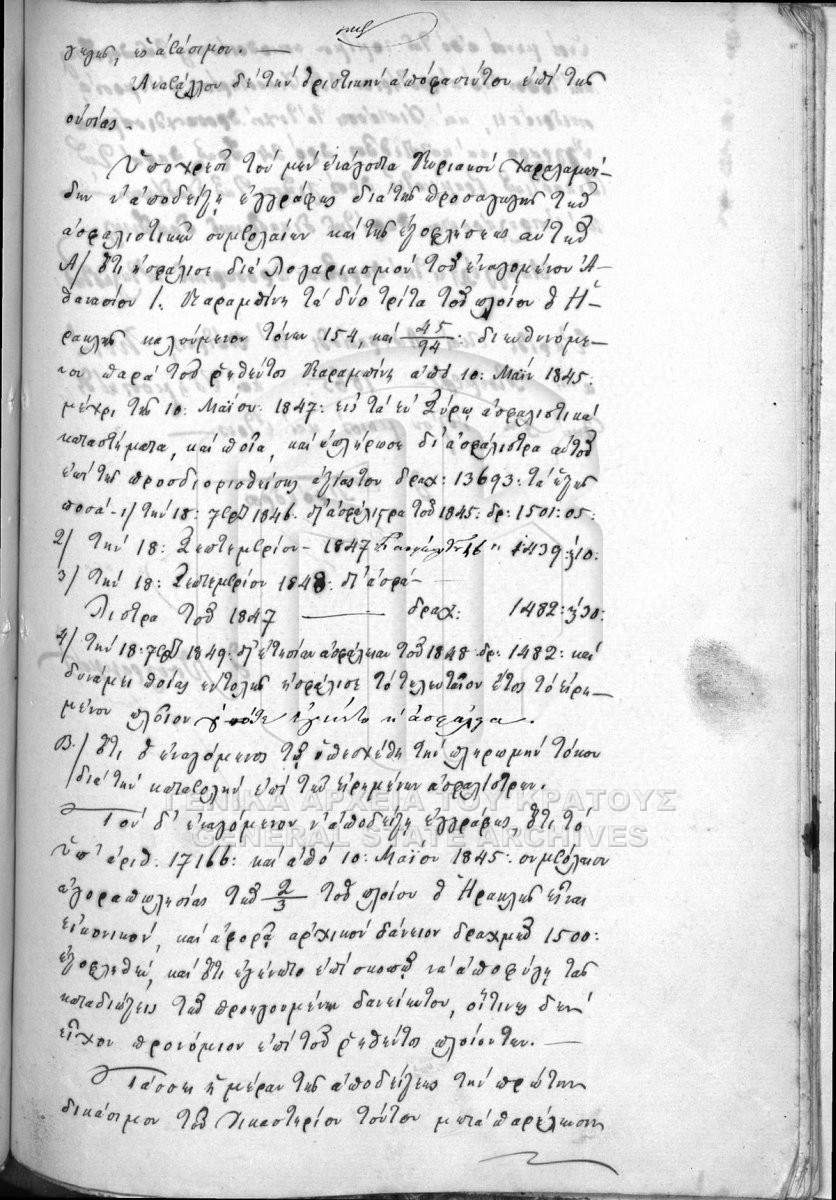 Αναβάλλον δε την οριστικήν απόφασίν του επί της
ουσίας.
Υποχρεοί τον μεν ενάγοντα Κυριακόν Χαραλαμπί-
δην ν' αποδείξη εγγράφως δια της προσαγωγής των
ασφαλιστικών συμβολαίων και της εξοφλήσεως αυτών
Α/ ότι ησφάλισε διά λογαριασμόν του εναγομένου Α-
θανασίου Ι. Καραμπίνη τα δύο τρίτα του πλοίου ο Η-
ρακλής καλούμενον τόνων 154, και 45/94: διευθυνόμε-
νον παρά του ρηθέντος Καραμπίνη από 10: Μαΐου 1845:
μέχρι της 10: Μαΐου: 1847: εις τα εν Σύρω ασφαλιστικά
καταστήματα, και ποία, και επλήρωσε δι' ασφάλιστρα αυτού
επί της προσδιορισθείσης αξίας των δραχ: 13693: τα εξής
ποσά - 1/ την 18: 7βρίου 1846. δι' ασφάλιστρα του 1845: δρ: 1501:05:
2/ την 18: Σεπτεμβρίου - 1847 46 " 1439:10:
3/ την 18: Σεπτεμβρίου 1848: δι' ασφά-
λιστρα του 1847 —— δραχ: 1482:30:
4/ την 18: 7βρίου 1849. δι' ετησίαν ασφάλειαν του 1848 δρ: 1482: και
δυνάμει ποίας εντολής ησφάλισε το τελευταίον έτος το ειρη-
μένον πλοίον εγένετο η ασφάλεια.
Β./ ότι ο εναγόμενος τω υπεσχέθη την πληρωμήν τόκου
δια την καταβολήν επί των ειρημένων ασφαλίστρων.
Τον δ' εναγόμενον ν' αποδείξη εγγράφως, ότι το
υπ' αριθ. 17166: και από 10: Μαΐου 1845: συμβόλαιον
αγοραπωλησίας των 2/3 του πλοίου ο Ηρακλής είναι
εικονικόν, και αφορά αρχικόν δάνειον δραχμών 1500:
εξοφληθέν, και ότι εγένετο επί σκοπώ να αποφύγη τας
καταδιώξεις των προηγουμένων δανειστών του, οίτινες δεν
είχον προνόμιον επί του ρηθέντος πλοίου του. —
Τάσσει ημέραν της αποδείξεως την πρώτην
δικάσιμον του Δικαστηρίου τούτου μετά παρέλευσιν
ΓΕΝΙΚΑ ΑΡΧΕΙΑ ΤΟΥ ΚΡΑΤΟΥΣ
GENERAL STATE ARCHIVES